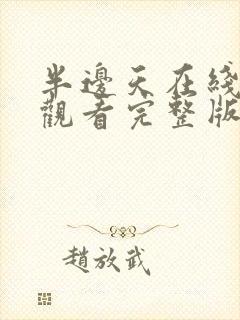 半邊天在綫
觀看完整版
趙放武